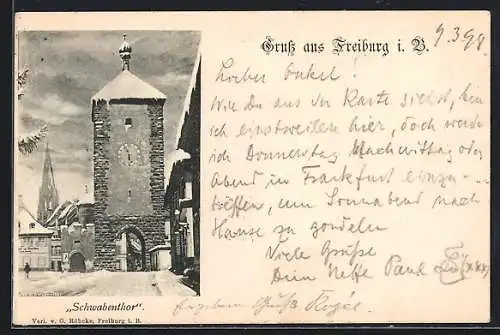 Gruß aus Freiburg i. B.
9.3.98
Lieber Onkel!
Wie Du aus der Karte siehst, bin
ich einstweilen hier, doch werde
ich Donnerstag Nachmittag oder
Abend in Frankfurt einzu-
treffen, um Sonnabend nach
Hause zu gondeln
Viele Grüße
Dein Neffe Paul
„Schwabenthor".
Verl. v. G. Röbcke, Freiburg i. B.
Grüße